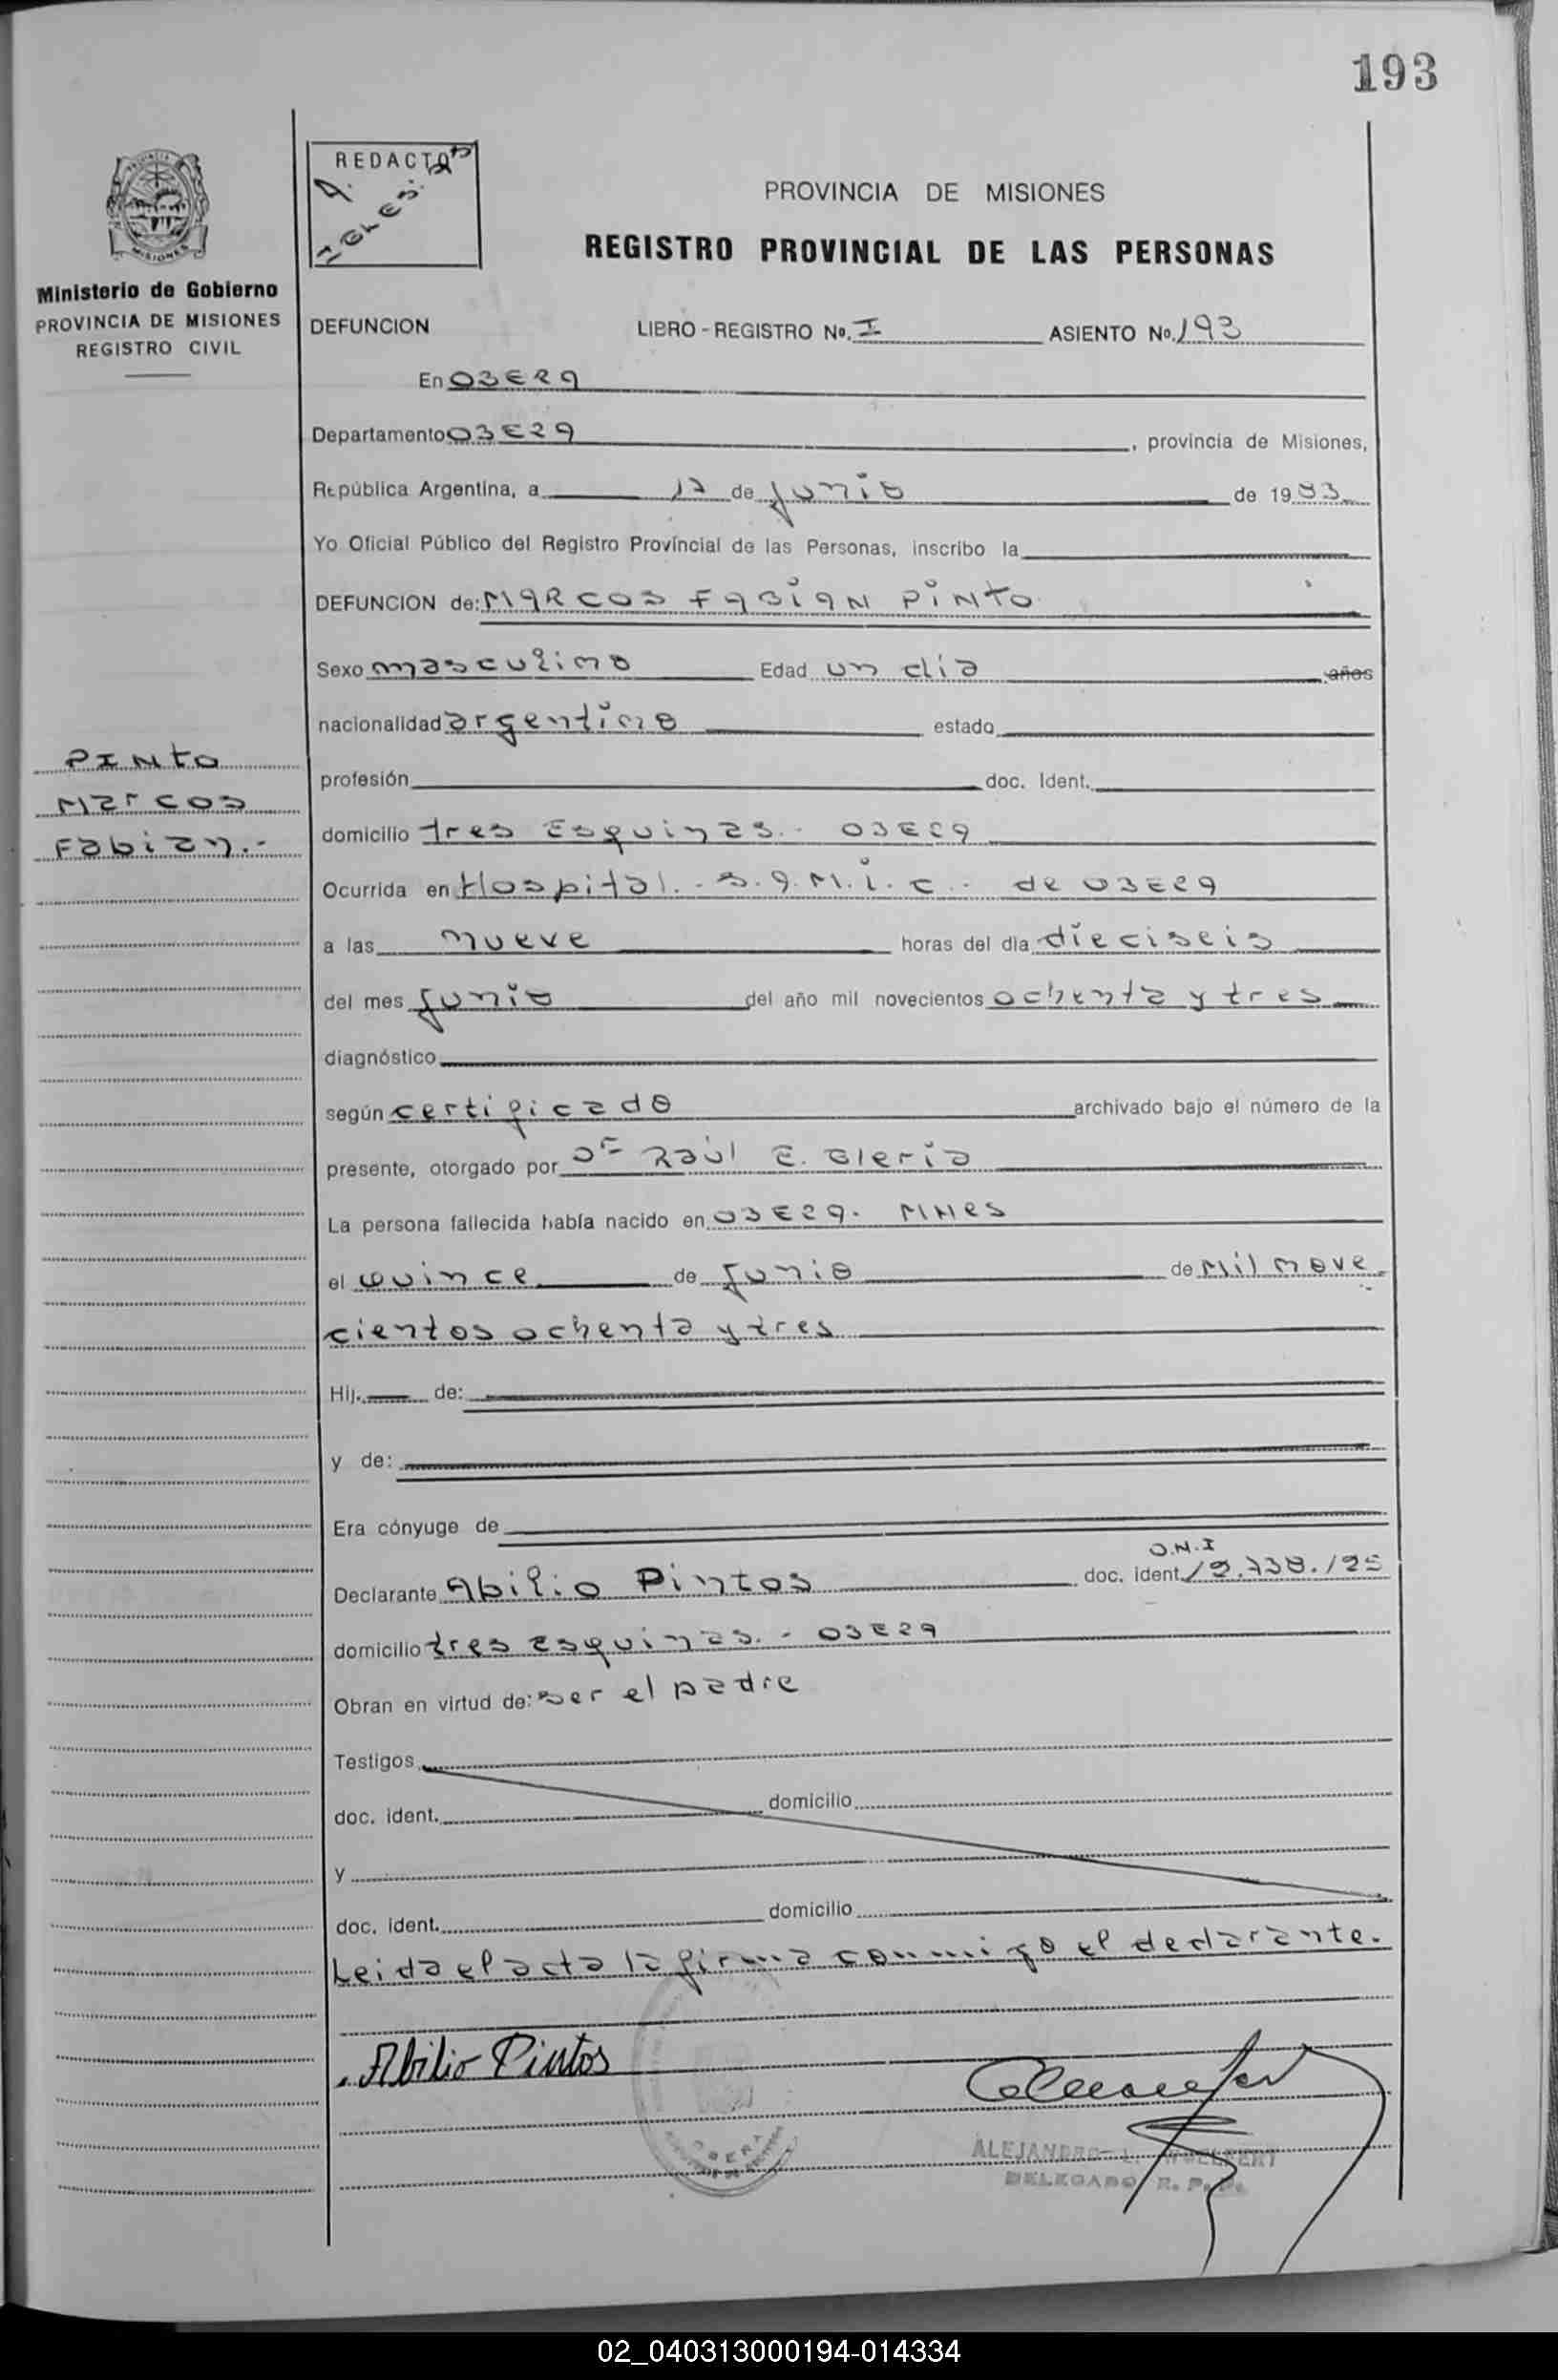 193
REDACTO
PROVINCIA DE MISIONES
REGISTRO PROVINCIAL DE LAS PERSONAS
Ministerio de Gobierno
PROVINCIA DE MISIONES
REGISTRO CIVIL
DEFUNCION LIBRO-REGISTRO No. I ASIENTO No. 193
En OBERA
Departamento OBERA, provincia de Misiones,
República Argentina, a 17 de junio de 1983
Yo Oficial Público del Registro Provincial de las Personas, inscribo la
DEFUNCION de: MARCOS FABIAN PINTO
Sexo masculino Edad un dia años
nacionalidad argentino estado
PINTO
MArcos
FabiAn.-
profesión doc. Ident.
domicilio tres Esquinas.- OBERA
Ocurrida en Hospital.- S.A.M.i.c.- de OBERA
a las nueve horas del día dieciseis
del mes junio del año mil novecientos ochenta y tres
diagnóstico
según certificado archivado bajo el número de la
presente, otorgado por Dr Raúl E. Gleria
La persona fallecida había nacido en OBERA. MNes
el quince de junio de Mil nove
cientos ochenta y tres
Hij. de:
y de:
Era cónyuge de
D.N.I
Declarante Abilio Pintos doc. ident.
domicilio tres esquinas.- OBERA
Obran en virtud de: ser el padre
Testigos
doc. ident. domicilio
y
doc. ident. domicilio
Leida el acta la firma conmigo el declarante.
Abilio Pintos
OBERA
ALEJANDRO L.
DELEGADO R. P. P.
02_040313000194-014334